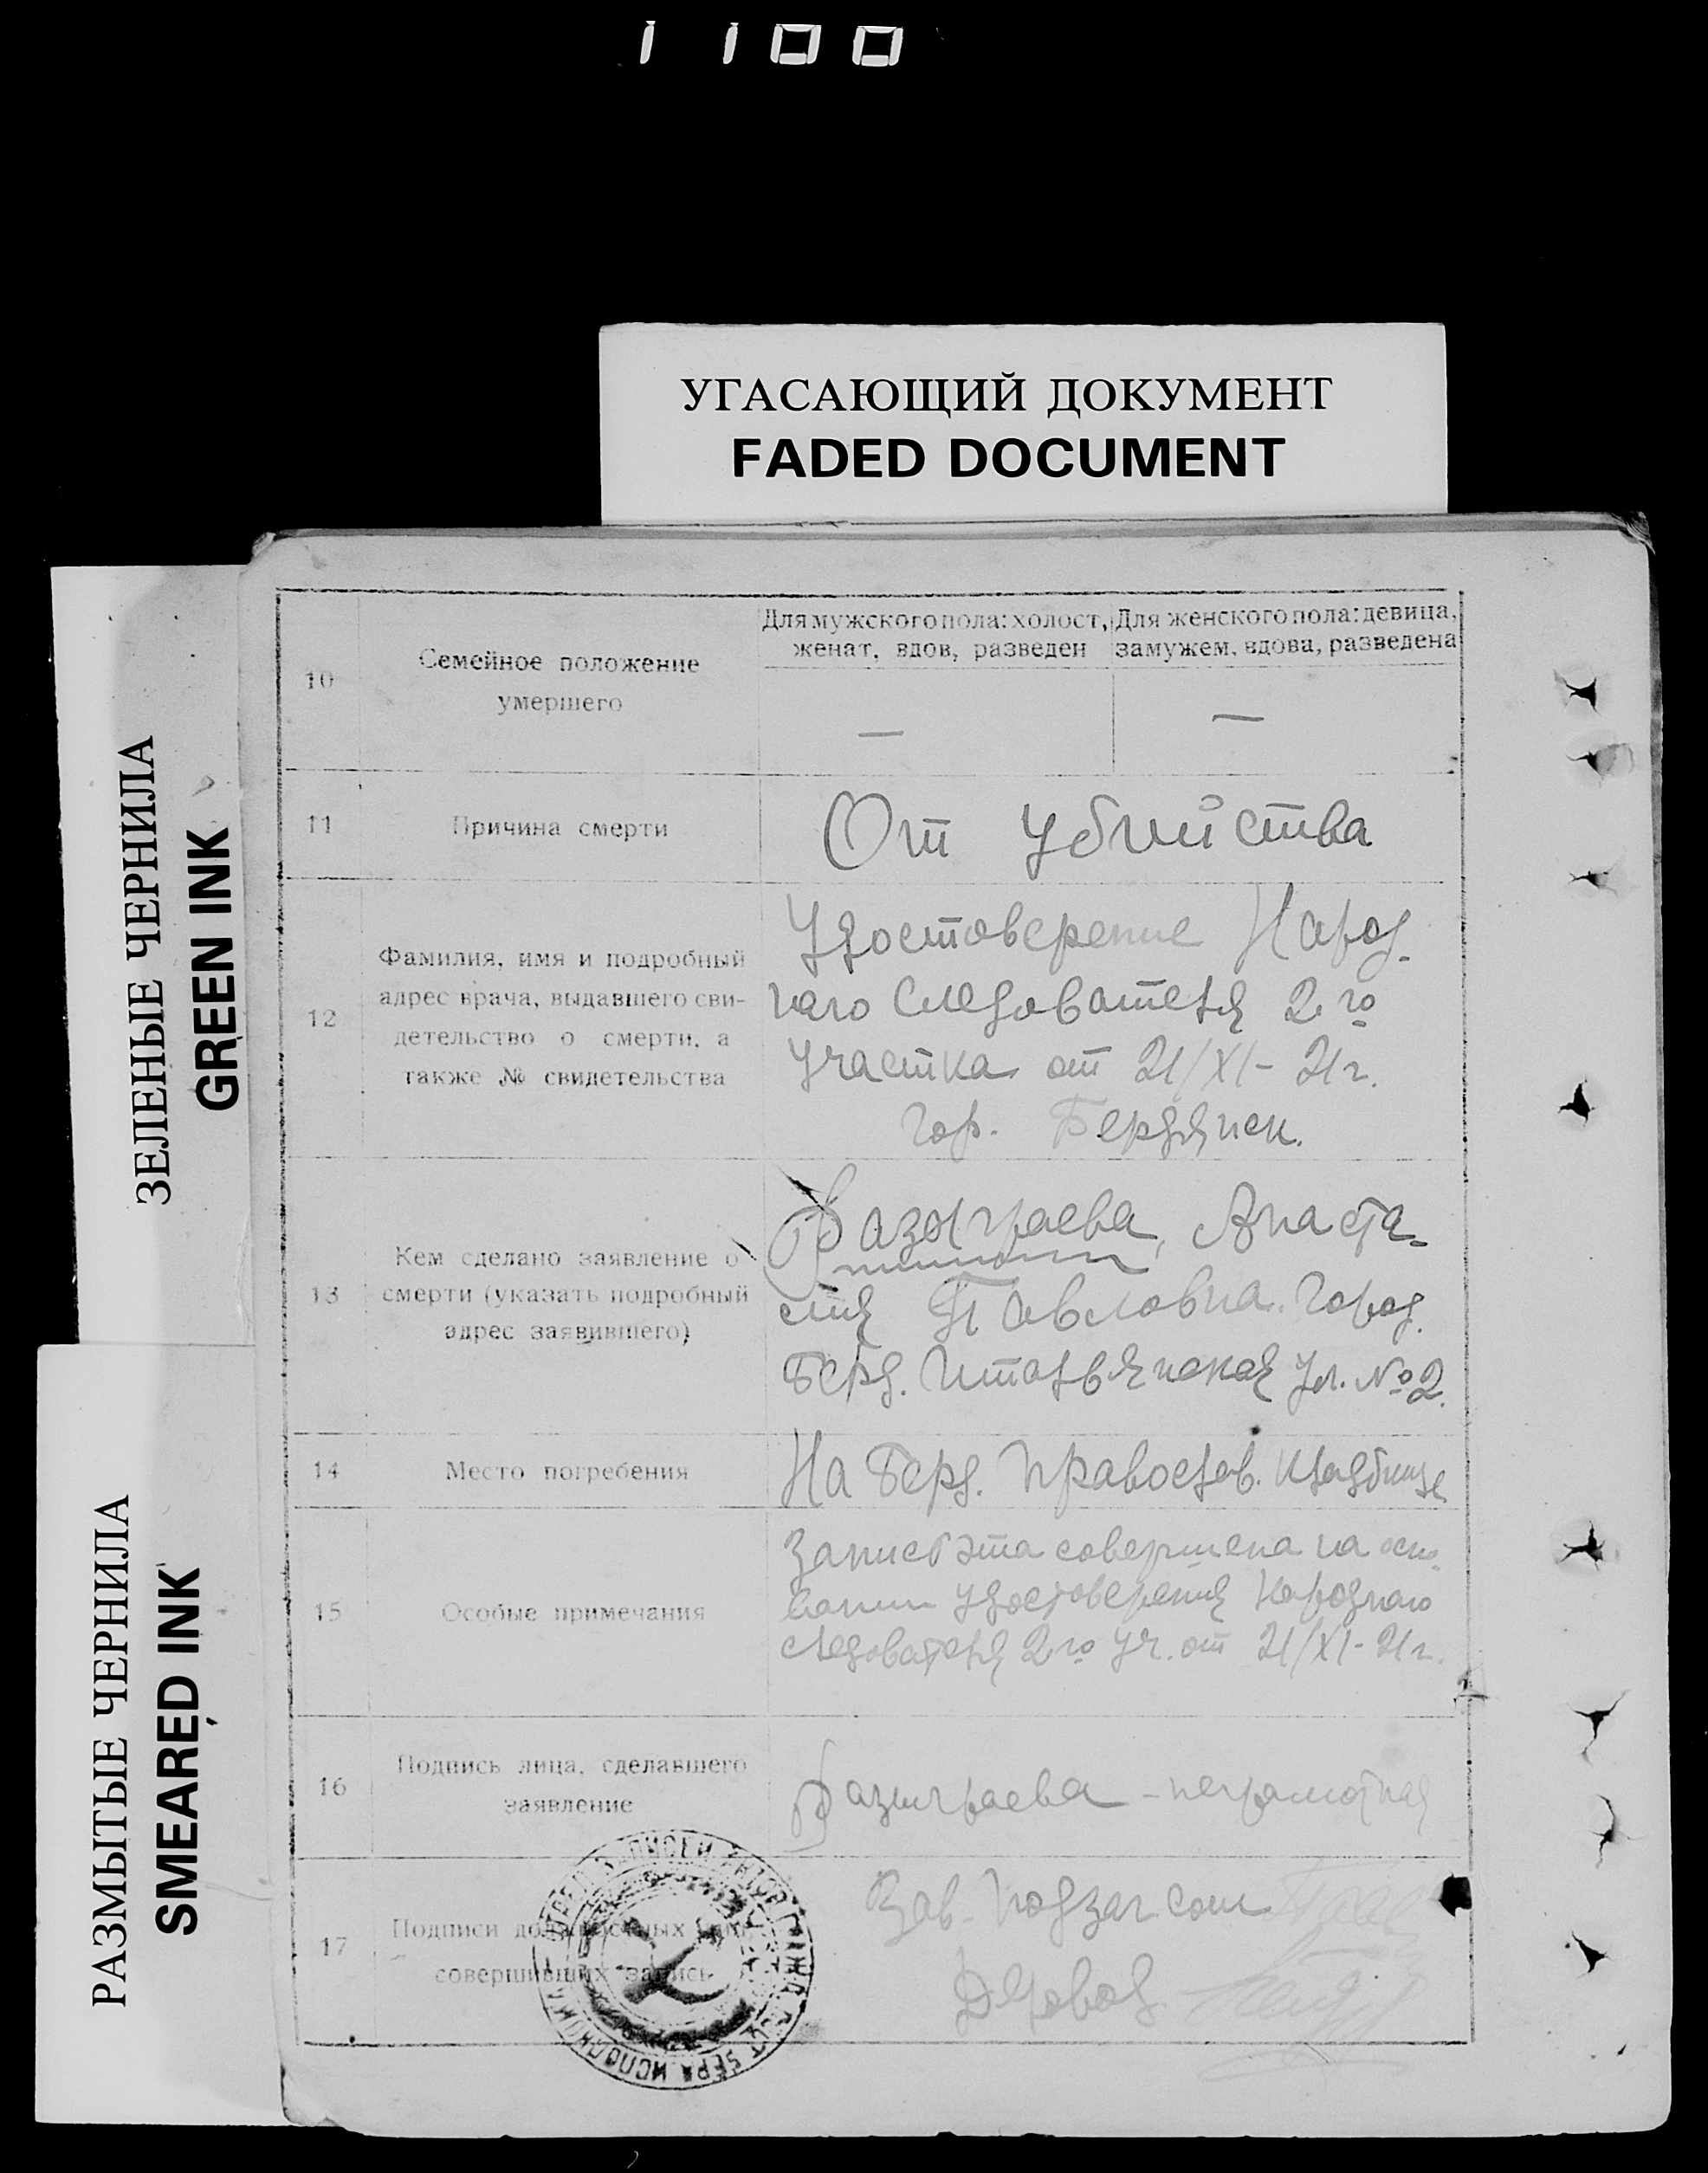 1 100
УГАСАЮЩИЙ ДОКУМЕНТ
FADED DOCUMENT
ЗЕЛЕНЫЕ ЧЕРНИЛА
GREEN INK
РАЗМЫТЫЕ ЧЕРНИЛА
SMEARED INK
10
Семейное положение
умершего
Для мужского пола: холост,
женат, вдов, разведен
Для женского пола: девица,
замужем, вдова, разведена
—
—
11
Причина смерти
От убийства
12
Фамилия, имя и подробный
адрес врача, выдавшего сви-
детельство о смерти, а
также № свидетельства
Удостоверение Народ-
наго Следователя 2го
участка от 21/XI-21г.
гор. Бердянск.
13
Кем сделано заявление о
смерти (указать подробный
адрес заявившего)
Анаста-
сия Павловна. Город.
Берд. Итальянская ул. №2.
14
Место погребения
На Берд. Православ. Кладбище
15
Особые примечания
Запись эта совершена на осно-
вании удостоверения Народнаго
следователя 2го уч. от 21/XI-21г.
16
Подпись лица, сделавшего
заявление
- неграмотная
17
Подписи должностных лиц,
совершивших запись
Зав.
Деловод